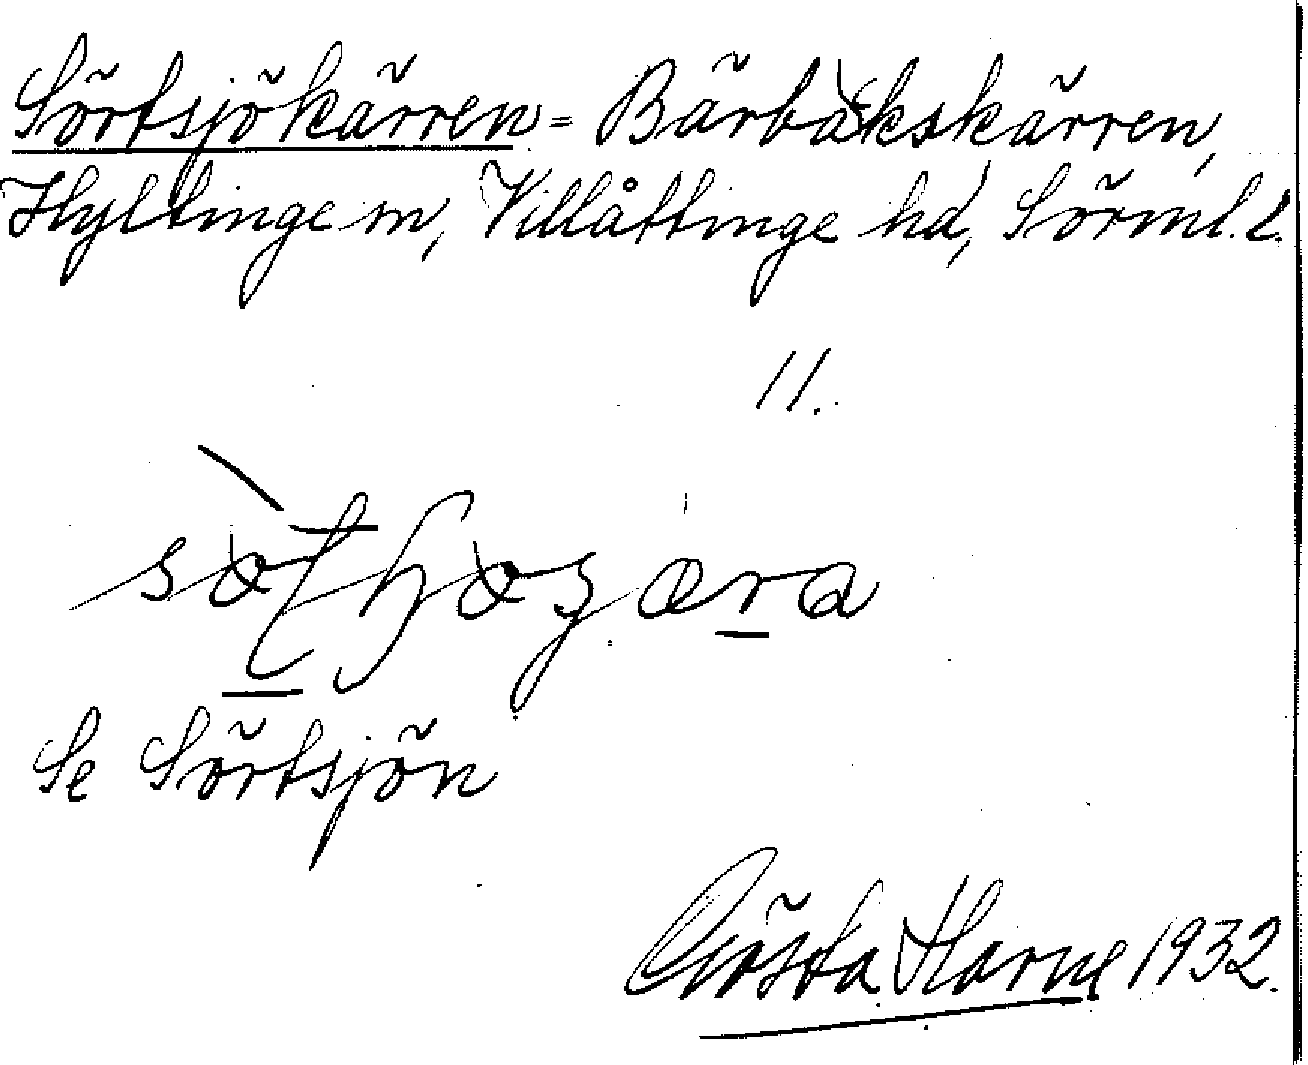 Sörtsjökärren = Bärbäckskärren,
Hyltinge sn, Villåttinge hd, Sörml. l.
11.
Se Sörtsjön
Gösta Harne 1932.